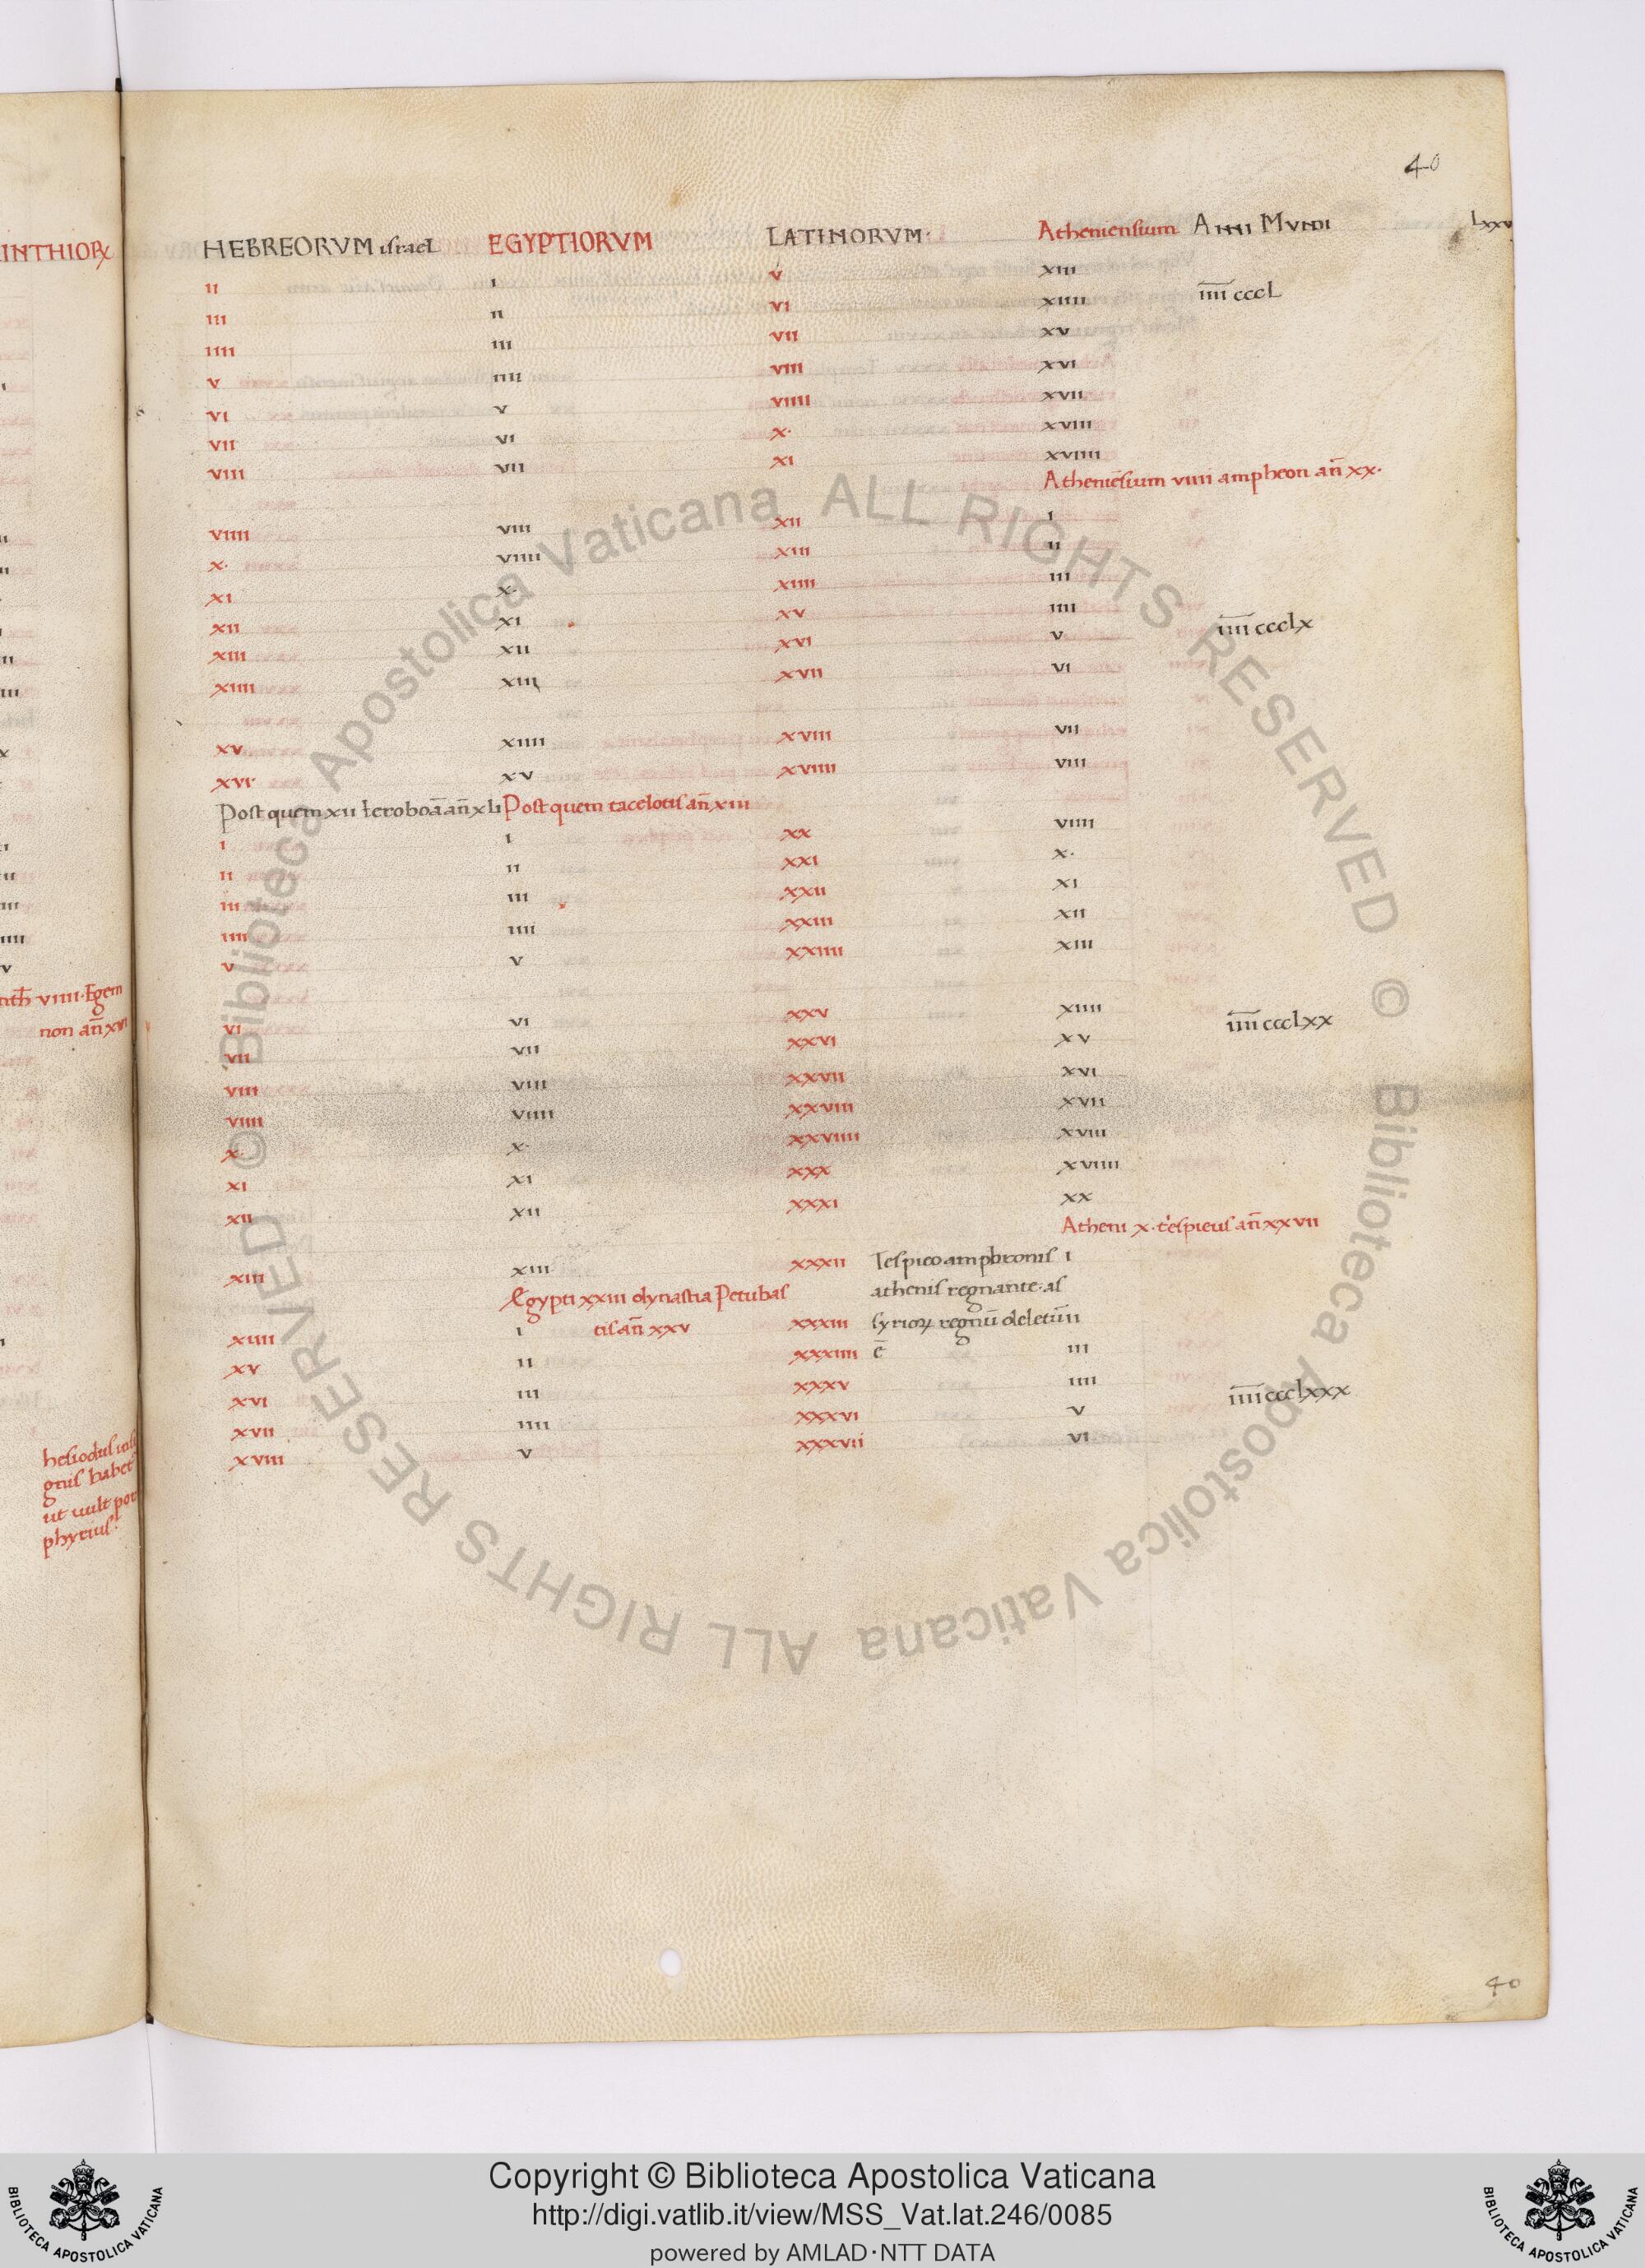 40
INTHIOꝜ HEBREORVM israel EGYPTIORVM LATINORVM· Atheniensium Anni Mundi Lxxv
ii i v xiii
iii ii vi xiiii i̅i̅i̅i̅ cccL
iiii iii vii xv
v iiii viii xvi
vi v viiii xvii
vii vi x· xviii
viii vii xi xviiii
Atheniēsium viiii ampheon an̄ xx·
viiii viii xii i
x· viiii xiii ii
xi x· xiiii iii
xii xi xv iiii i̅i̅i̅i̅ ccclx
xiii xii xvi v
xiiii xiii xvii vi
xv xiiii xviii vii
xvi xv xviiii viii
Post quem xii Ieroboā an̄ xli Post quem tacelotis an̄ xiii
i i xx viiii
ii ii xxi x·
iii iii xxii xi
iiii iiii xxiii xii
v v xxiiii xiii
viiii·Egem
non an̄ xvi
vi vi xxv xiiii i̅i̅i̅i̅ ccclxx
vii vii xxvi xv
viii viii xxvii xvi
viiii viiii xxviii xvii
x· x· xxviiii xviii
xi xi xxx xviiii
xii xii xxxi xx
Atheni x· tespieus an̄ xxvii
xiii xiii xxxii Tespieo amphronis i
Ægypti xxiii dynastia Petubas athenis regnante· as
xiiii i tis an̄ xxv xxxiii syrioꝝ regnū deletū ii
xv ii xxxiiii ē iii
xvi iii xxxv iiii i̅i̅i̅i̅ ccclxxx
xvii iiii xxxvi v
xviii v xxxvii vi
hesiodus insi
gnis habet
ut uult por
phyrius·
40
© Biblioteca Apostolica Vaticana ALL RIGHTS RESERVED © Biblioteca Apostolica Vaticana ALL RIGHTS RESERVED
BIBLIOTECA APOSTOLICA VATICANA
Copyright © Biblioteca Apostolica Vaticana
http://digi.vatlib.it/view/MSS_Vat.lat.246/0085
powered by AMLAD·NTT DATA
BIBLIOTECA APOSTOLICA VATICANA